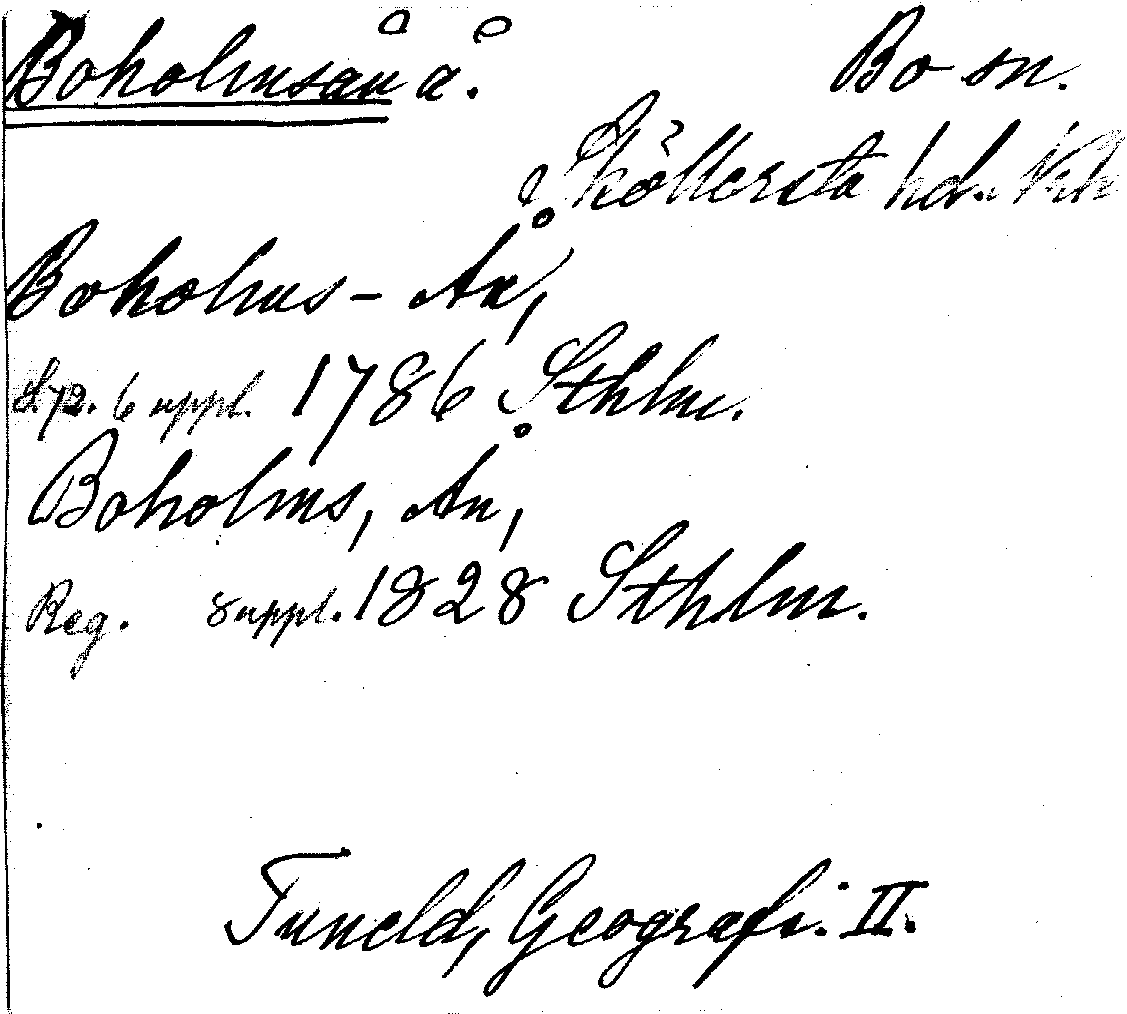 Boholmsån å. Bo sn.
Sköllersta hd.
Boholms-Ån,
6 uppl. 1786 Sthlm.
Boholms, Ån,
Reg. 8 uppl. 1828 Sthlm.
Tuneld, Geografi. II.